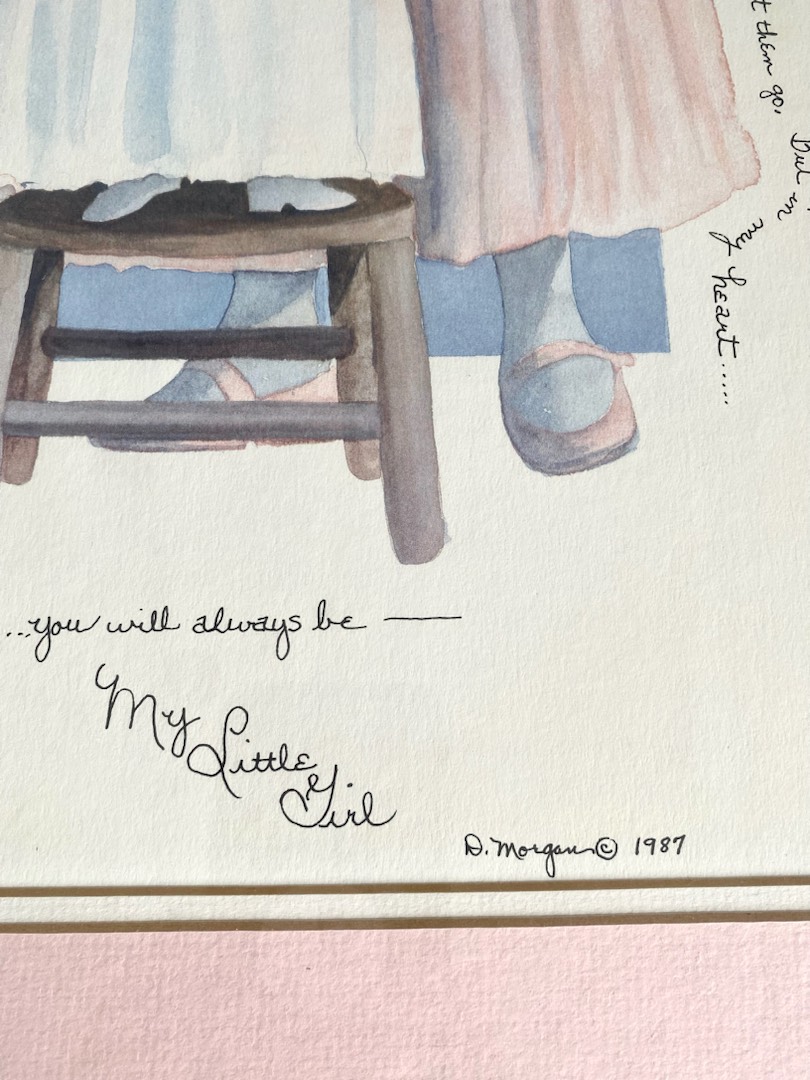 t them go.
But in
my heart.....
...you will always be —
My Little Girl
D. Morgan © 1987